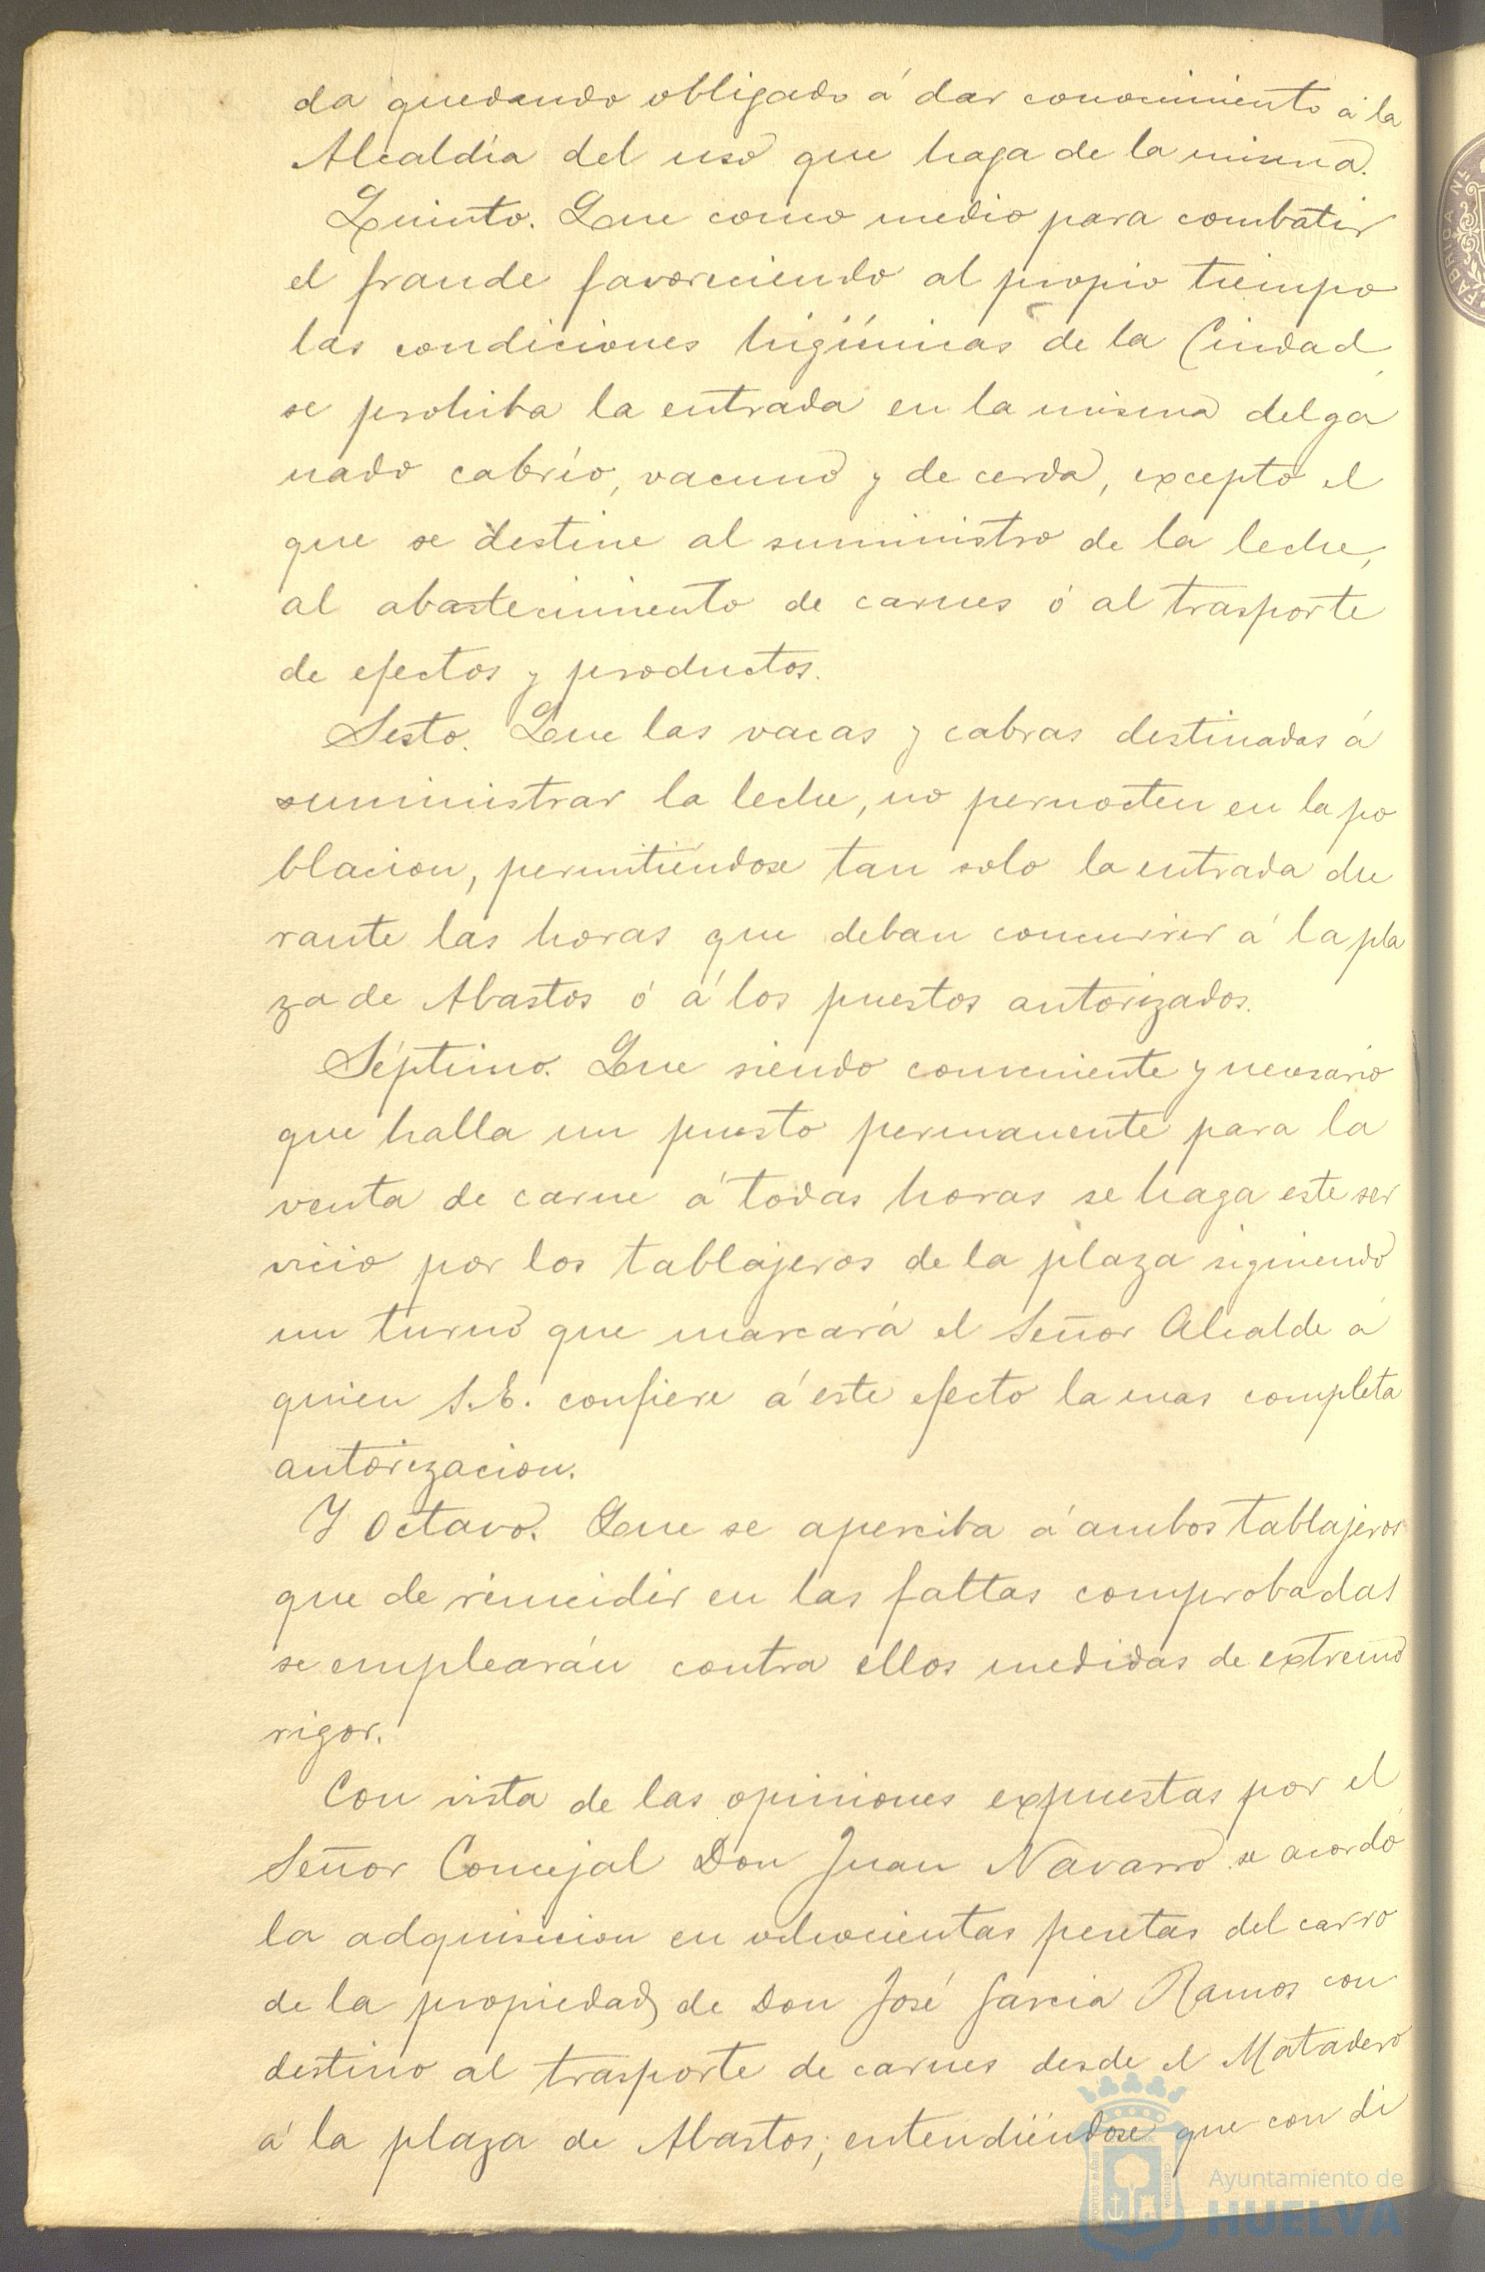 da quedando obligado á dar conocimiento á la
Alcaldía del uso que haga de la misma.
Quinto. Que como medio para combatir
el fraude favoreciendo al propio tiempo
las condiciones higiénicas de la Ciudad
se prohiba la entrada en la misma del ga
nado cabrío, vacuno y de cerda, excepto el
que se destine al suministro de la leche,
al abastecimiento de carnes ó al trasporte
de efectos y productos.
Sesto. Que las vacas y cabras destinadas á
suministrar la leche, no pernocten en la po
blacion, permitiéndose tan solo la entrada du
rante las horas que deban concurrir á la pla
za de Abastos ó á los puestos autorizados.
Séptimo. Que siendo conveniente y necesario
que halla un puesto permanente para la
venta de carne á todas horas se haga este ser
vicio por los tablajeros de la plaza siguiendo
un turno que marcará el Señor Alcalde á
quien S.E. confiere á este efecto la mas completa
autorizacion.
Y Octavo. Que se aperciba á ambos tablajeros
que de reincidir en las faltas comprobadas
se emplearán contra ellos medidas de extremo
rigor.
Con vista de las opiniones expuestas por el
Señor Concejal Don Juan Navarro se acordó
la adquisicion en ochocientas pesetas del carro
de la propiedad de Don José Garcia Ramos con
destino al trasporte de carnes desde el Matadero
á la plaza de Abastos; entendiéndose que con di
Ayuntamiento de
HUELVA
FABRICA